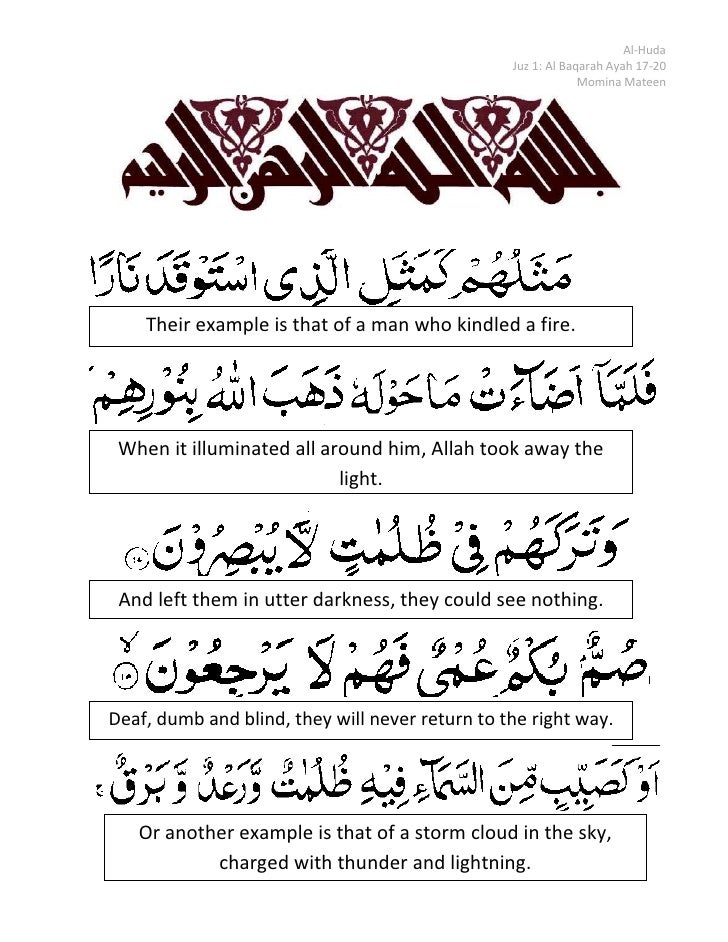 Al-Huda
Juz 1: Al Baqarah Ayah 17-20
Momina Mateen
بسم الله الرحمن الرحيم
مَثَلُهُمْ كَمَثَلِ الَّذِى اسْتَوْقَدَ نَارًا
Their example is that of a man who kindled a fire.
فَلَمَّآ اَضَآءَتْ مَا حَوْلَهٗ ذَهَبَ اللّٰهُ بِنُوْرِهِمْ
When it illuminated all around him, Allah took away the
light.
وَتَرَكَهُمْ فِىْ ظُلُمٰتٍ لَّا يُبْصِرُوْنَ
And left them in utter darkness, they could see nothing.
صُمٌّۢ بُكْمٌ عُمْىٌ فَهُمْ لَا يَرْجِعُوْنَ ۙ
Deaf, dumb and blind, they will never return to the right way.
اَوْ كَصَيِّبٍ مِّنَ السَّمَآءِ فِيْهِ ظُلُمٰتٌ وَّرَعْدٌ وَّبَرْقٌ
Or another example is that of a storm cloud in the sky,
charged with thunder and lightning.